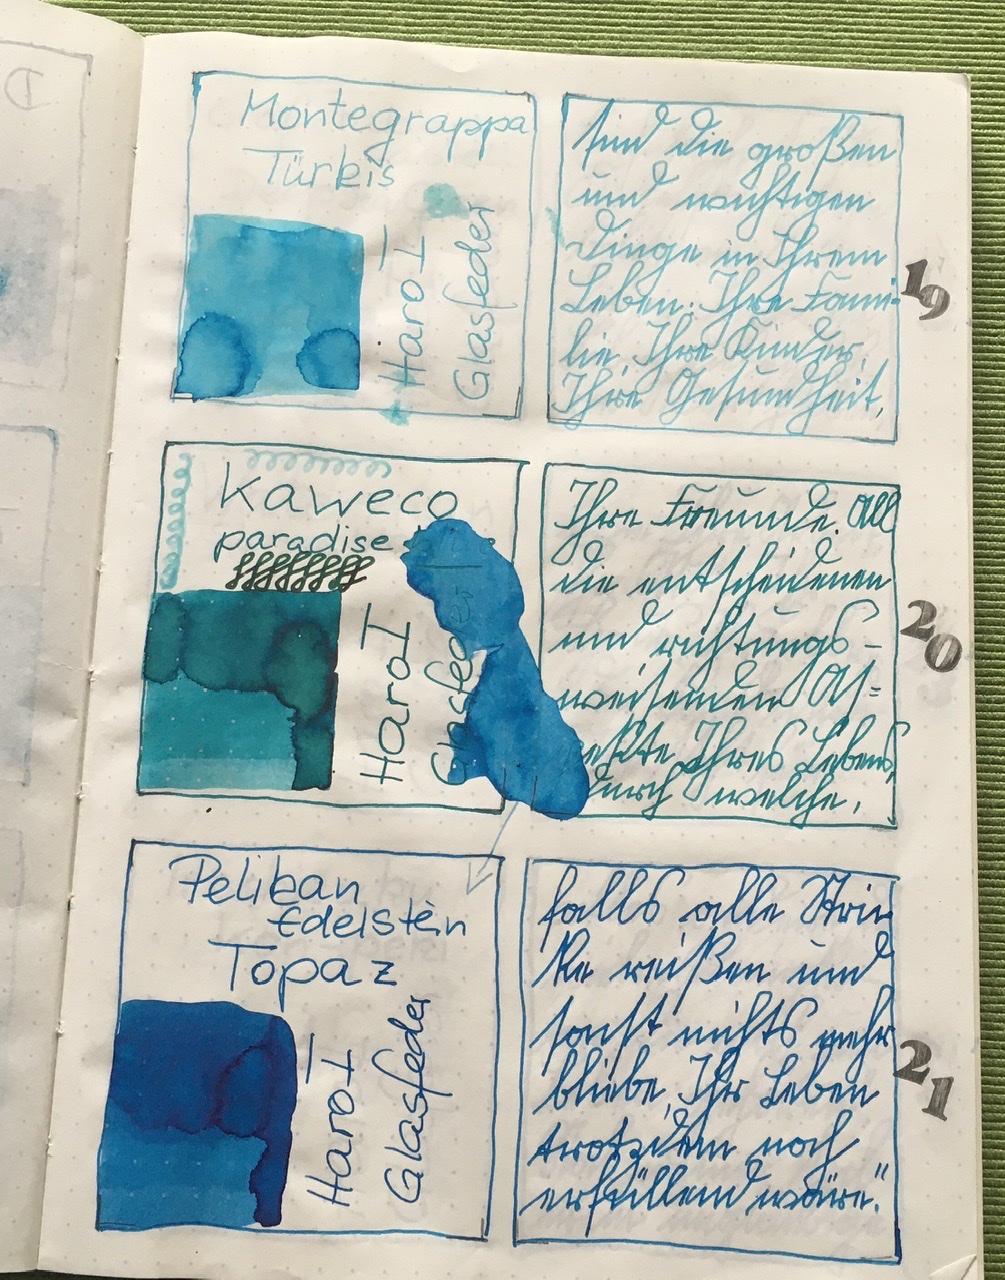 Montegrappa
Türkis
Harot
Glasfeder
sind die großen
und wichtigen
Dinge in Ihrem
Leben: Ihre Fami-
lie, Ihre Kinder,
Ihre Gesundheit,
19
Kaweco
paradise
Harot
Glasfeder
Ihre Freunde. All
die entscheidenen
und richtungs-
weisenden As=
pekte Ihres Lebens,
durch welche,
20
Pelikan
Edelstein
Topaz
Harot
Glasfeder
falls alle Stri-
ke reißen und
sonst nichts mehr
bliebe, Ihr Leben
trotzdem noch
erfüllend wäre."
21